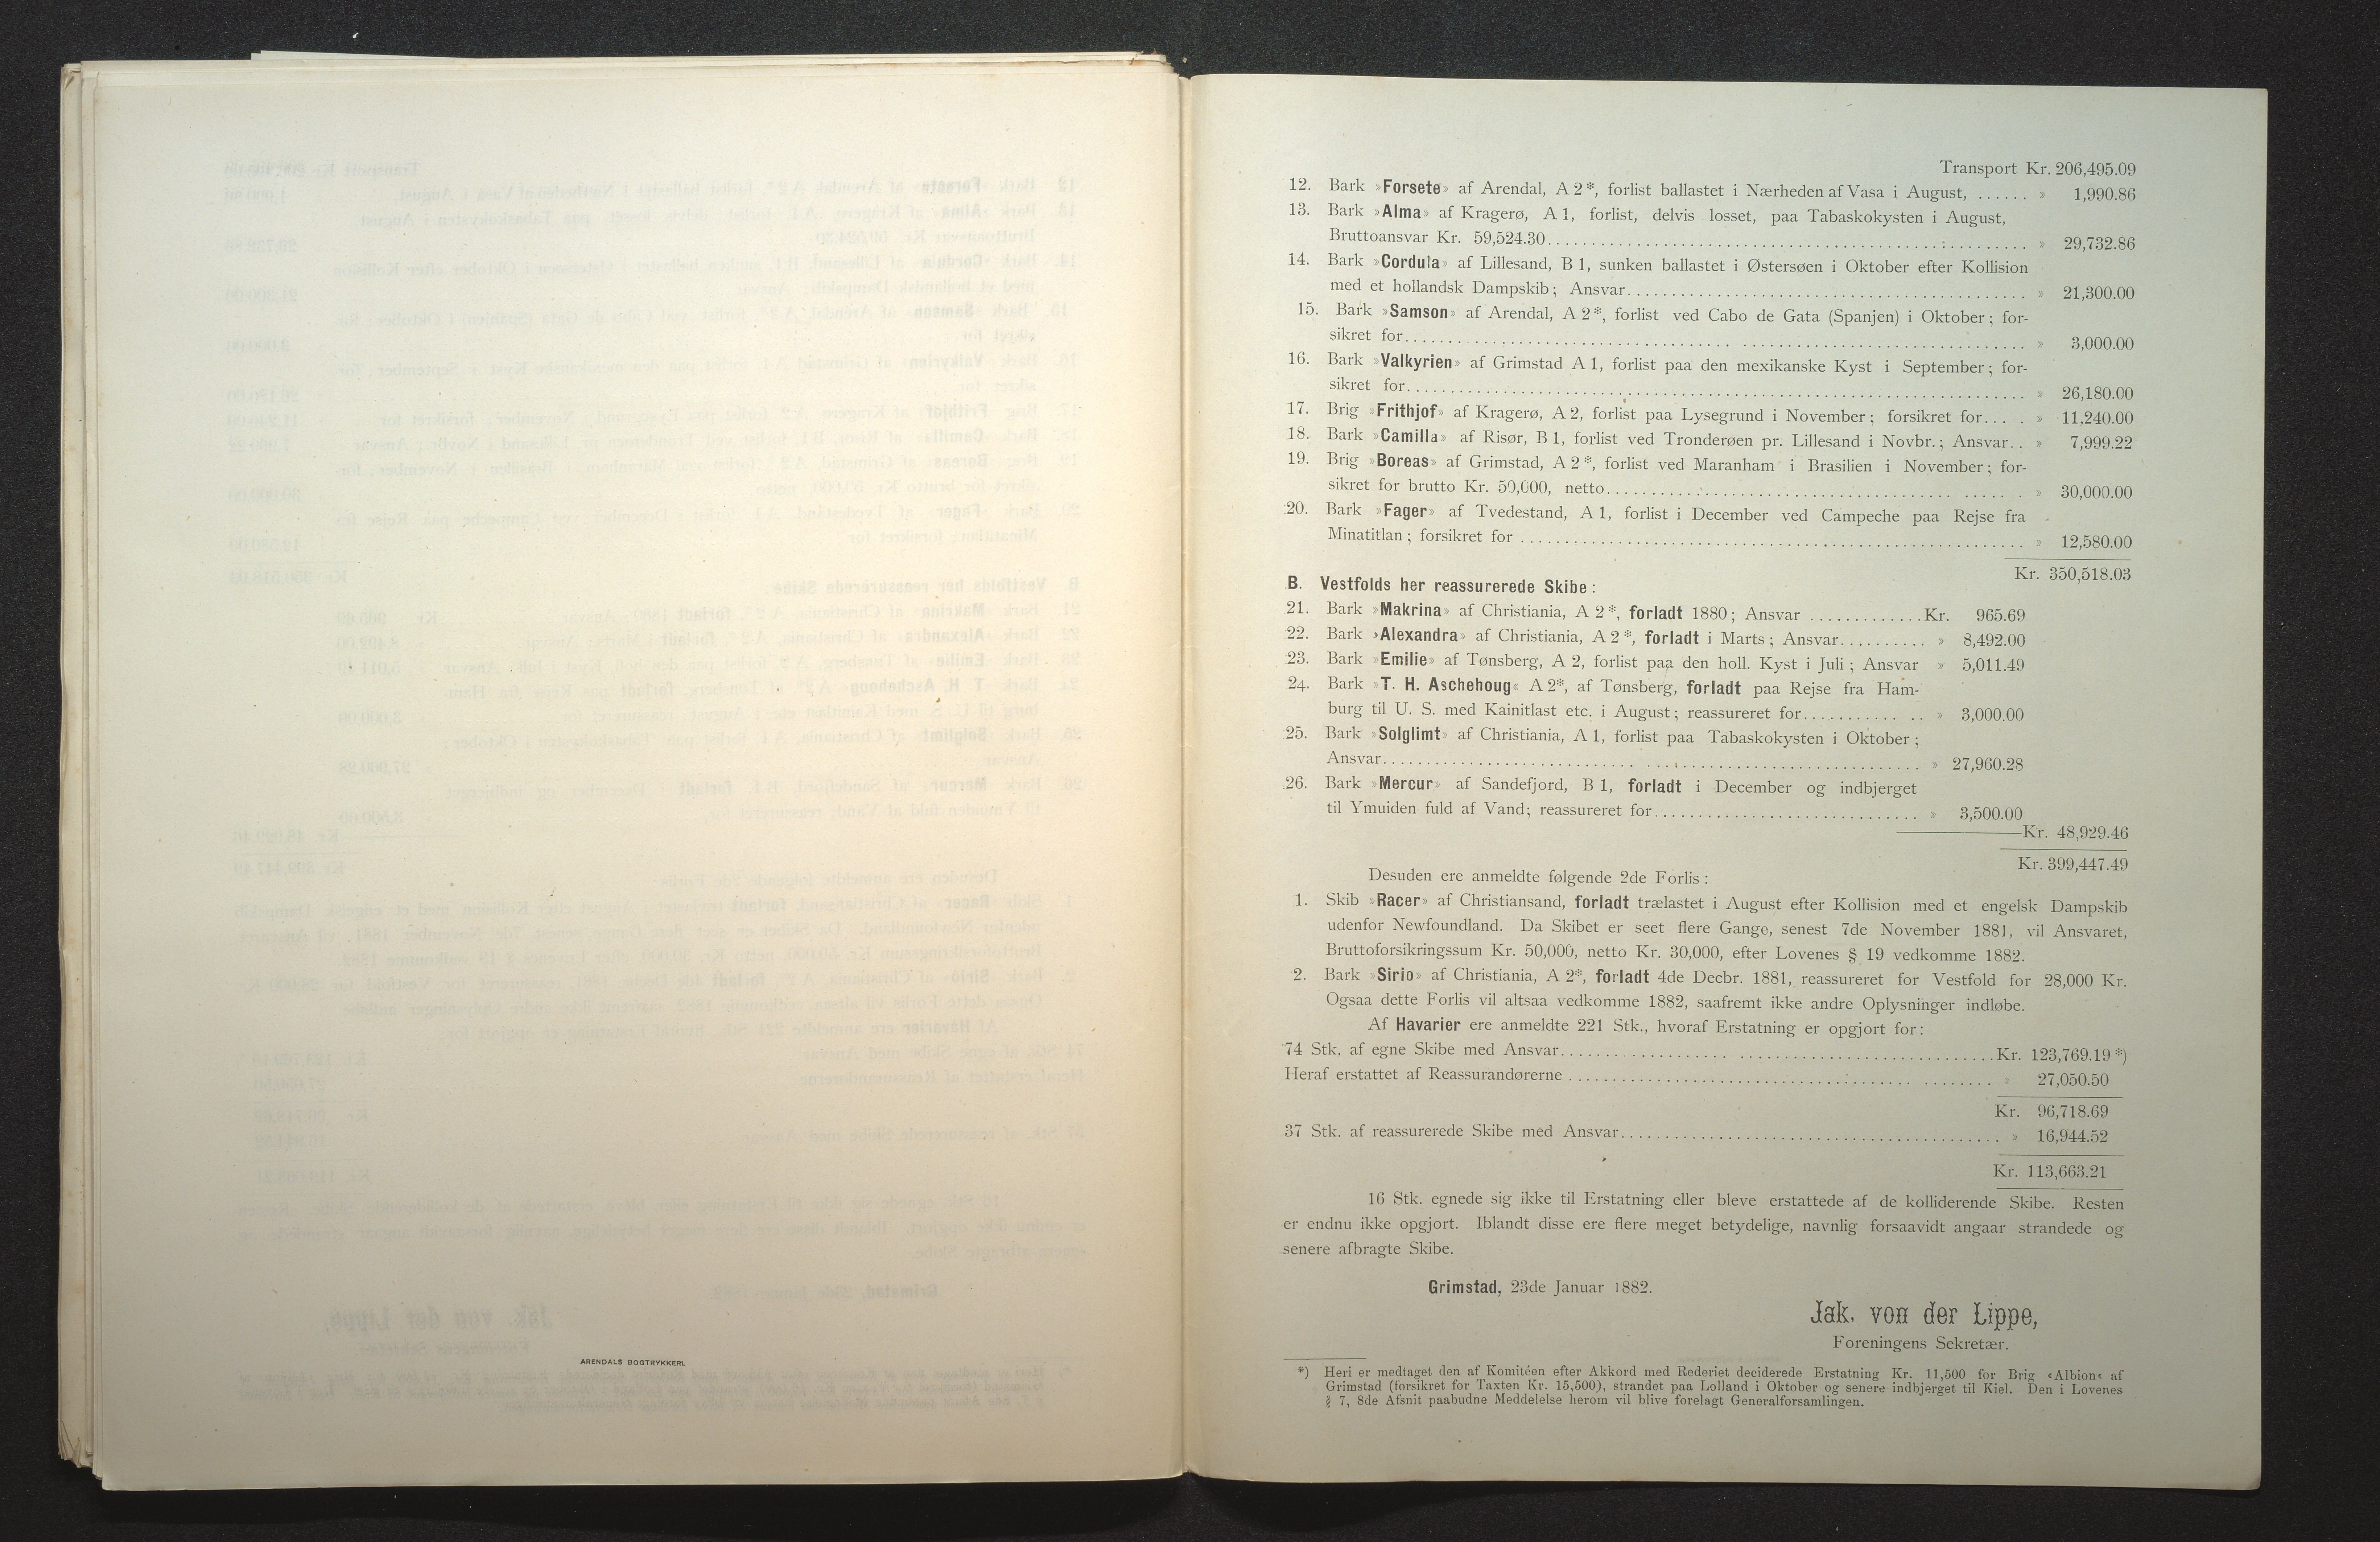 ARENDALS BOGTRYKKERI.
Transport Kr. 206,495.09
12. Bark »Forsete» af Arendal, A 2*, forlist ballastet i Nærheden af Vasa i August, ...... » 1,990.86
13. Bark »Alma» af Kragerø, A 1, forlist, delvis losset, paa Tabaskokysten i August,
Bruttoansvar Kr. 59,524.30........ » 29,732.86
14. Bark »Cordula» af Lillesand, B 1, sunken ballastet i Østersøen i Oktober efter Kollision
med et hollandsk Dampskib; Ansvar........ » 21,300.00
15. Bark »Samson» af Arendal, A 2*, forlist ved Cabo de Gata (Spanjen) i Oktober; for-
sikret for........ » 3,000.00
16. Bark »Valkyrien» af Grimstad A 1, forlist paa den mexikanske Kyst i September; for-
sikret for........ » 26,180.00
17. Brig »Frithjof» af Kragerø, A 2, forlist paa Lysegrund i November; forsikret for.... » 11,240.00
18. Bark »Camilla» af Risør, B 1, forlist ved Tronderøen pr. Lillesand i Novbr.; Ansvar.. » 7,999.22
19. Brig »Boreas» af Grimstad, A 2*, forlist ved Maranham i Brasilien i November; for-
sikret for brutto Kr. 50,000, netto........ » 30,000.00
20. Bark »Fager» af Tvedestand, A 1, forlist i December ved Campeche paa Rejse fra
Minatitlan; forsikret for ........ » 12,580.00
Kr. 350,518.03
B. Vestfolds her reassurerede Skibe:
21. Bark »Makrina» af Christiania, A 2*, forladt 1880; Ansvar ........Kr. 965.69
22. Bark »Alexandra» af Christiania, A 2*, forladt i Marts; Ansvar........ » 8,492.00
23. Bark »Emilie» af Tønsberg, A 2, forlist paa den holl. Kyst i Juli; Ansvar » 5,011.49
24. Bark »T. H. Aschehoug« A 2*, af Tønsberg, forladt paa Rejse fra Ham-
burg til U. S. med Kainitlast etc. i August; reassureret for........ » 3,000.00
25. Bark »Solglimt» af Christiania, A 1, forlist paa Tabaskokysten i Oktober;
Ansvar........ » 27,960.28
26. Bark »Mercur» af Sandefjord, B 1, forladt i December og indbjerget
til Ymuiden fuld af Vand; reassureret for........ » 3,500.00
Kr. 48,929.46
Kr. 399,447.49
Desuden ere anmeldte følgende 2de Forlis:
1. Skib »Racer» af Christiansand, forladt trælastet i August efter Kollision med et engelsk Dampskib
udenfor Newfoundland. Da Skibet er seet flere Gange, senest 7de November 1881, vil Ansvaret,
Bruttoforsikringssum Kr. 50,000, netto Kr. 30,000, efter Lovenes § 19 vedkomme 1882.
2. Bark »Sirio» af Christiania, A 2*, forladt 4de Decbr. 1881, reassureret for Vestfold for 28,000 Kr.
Ogsaa dette Forlis vil altsaa vedkomme 1882, saafremt ikke andre Oplysninger indløbe.
Af Havarier ere anmeldte 221 Stk., hvoraf Erstatning er opgjort for:
74 Stk. af egne Skibe med Ansvar........Kr. 123,769.19*)
Heraf erstattet af Reassurandørerne ........ » 27,050.50
Kr. 96,718.69
37 Stk. af reassurerede Skibe med Ansvar........ » 16,944.52
Kr. 113,663.21
16 Stk. egnede sig ikke til Erstatning eller bleve erstattede af de kolliderende Skibe. Resten
er endnu ikke opgjort. Iblandt disse ere flere meget betydelige, navnlig forsaavidt angaar strandede og
senere afbragte Skibe.
Grimstad, 23de Januar 1882.
Jak. von der Lippe,
Foreningens Sekretær.
*) Heri er medtaget den af Komitéen efter Akkord med Rederiet deciderede Erstatning Kr. 11,500 for Brig «Albion« af
Grimstad (forsikret for Taxten Kr. 15,500), strandet paa Lolland i Oktober og senere indbjerget til Kiel. Den i Lovenes
§ 7, 8de Afsnit paabudne Meddelelse herom vil blive forelagt Generalforsamlingen.